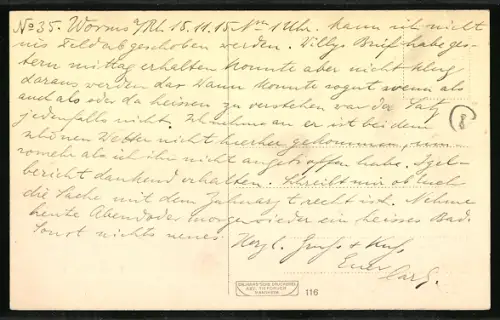 No 35. Worms a/Rh. 15.11.15 Nm 1 Uhr. Kann ich nicht
ins Feld abgeschoben werden. Willys Brief habe ges-
tern mittag erhalten konnte aber nicht klug
daraus werden das Wann konnte sogut wenn als
auch als oder da heissen zu verstehen war der Satz
jedenfalls nicht. Ich nehme an er ist bei dem
schönen Wetter nicht hierher gekommen, um-
somehr als ich ihn nicht angetroffen habe.
bericht dankend erhalten. Schreibt mir ob Euch
die Sache mit dem Zahnarzt recht ist. Nehme
heute Abend oder morgen wieder ein heisses Bad.
Sonst nichts neues.
Herzl. Gruss & Kuss
Euer
Carl.
8
116